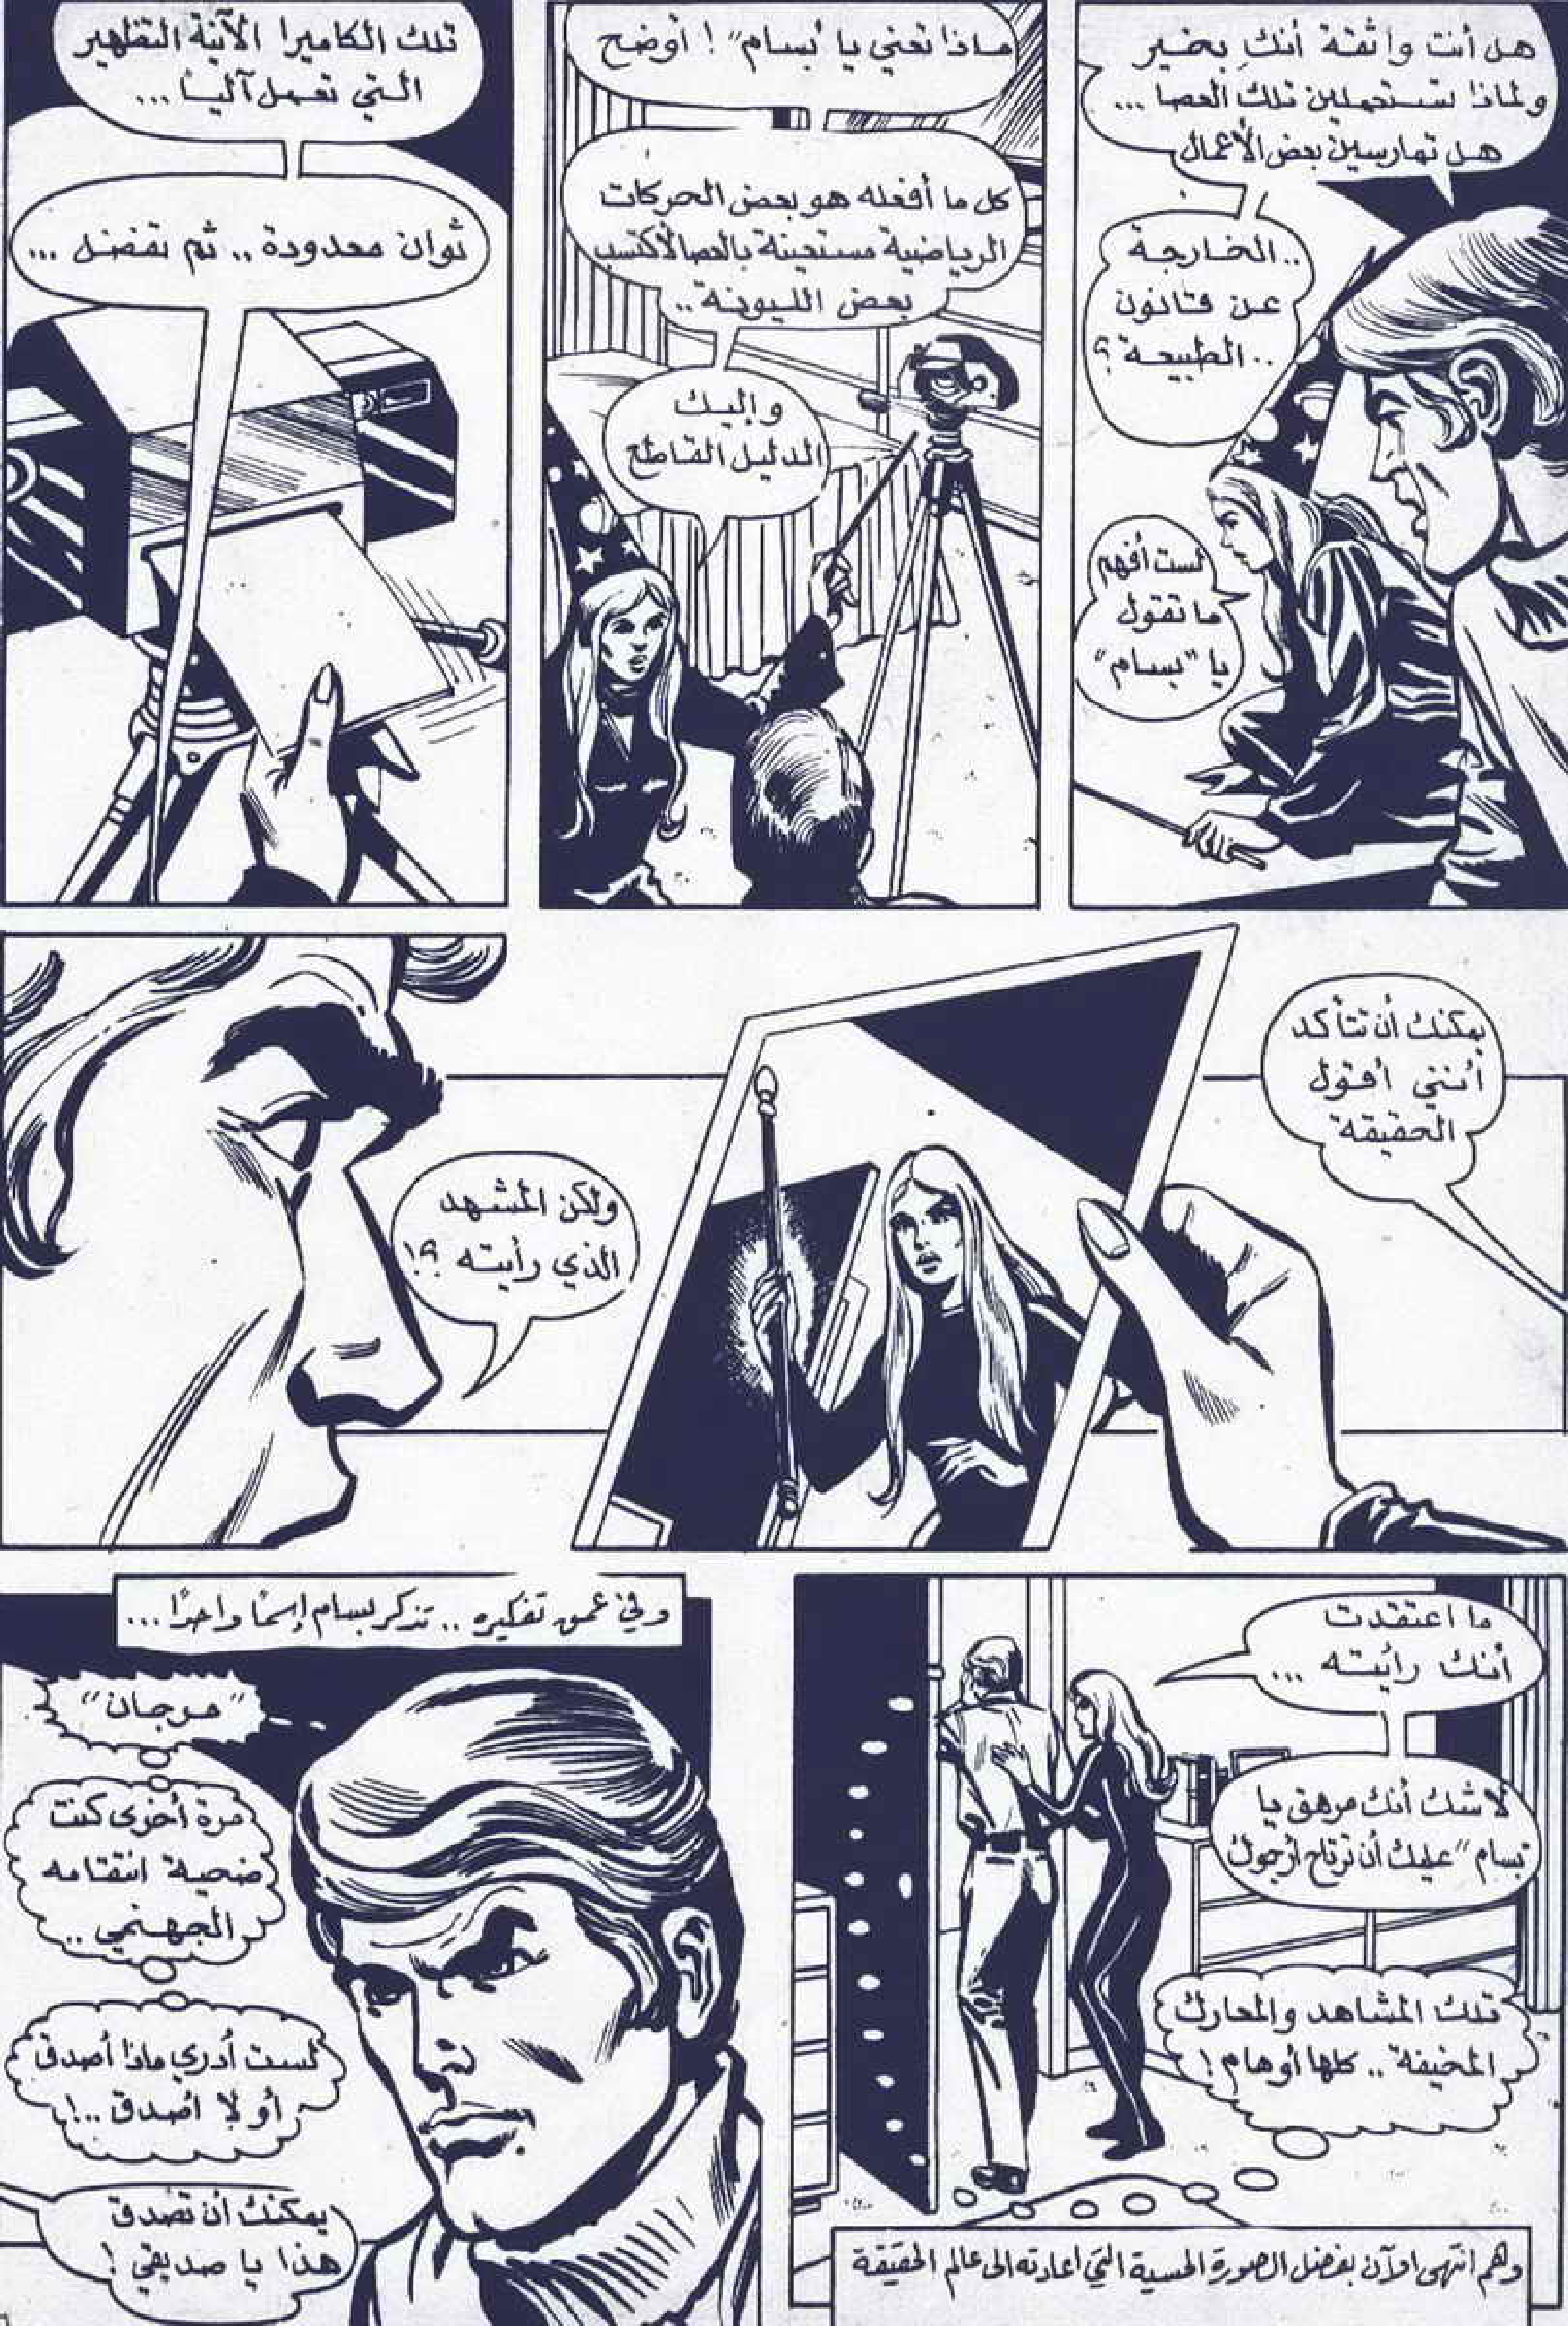 هل أنت واثقة أنكِ بخير
ولماذا تستعملين تلك العصا ...
هل تمارسين بعض الأعمال
..الخارجة
عن قانون
..الطبيعة؟
لست أفهم
ما تقول
يا "بسام"
ماذا تعني يا "بسام" ! أوضح
كل ما أفعله هو بعض الحركات
الرياضية مستعينة بالعصا لأكتسب
بعض الليونة ..
وإليك
الدليل القاطع
تلك الكاميرا الآنية التظهير
التي تعمل آلياً ...
ثوان معدودة .. ثم تفضل ...
يمكنك أن تتأكد
أنني أقول
الحقيقة
ولكن المشهد
الذي رأيته ؟!
ما اعتقدت
أنك رأيته ...
لا شك أنك مرهق يا
بسام" عليك أن ترتاح أرجوك
تلك المشاهد والمعارك
المخيفة .. كلها أوهام !
وهم انتهى الآن بفضل الصورة الحسية التي اعادته الى عالم الحقيقة
وفي عمق تفكيره .. تذكر بسام إسمًا واحدًا ...
"مرجان"
مرة أخرى كنت
ضحية انتقامه
الجهنمي ..
لست أدري ماذا أصدق
أو لا أصدق ..!
يمكنك أن تصدق
هذا يا صديقي !